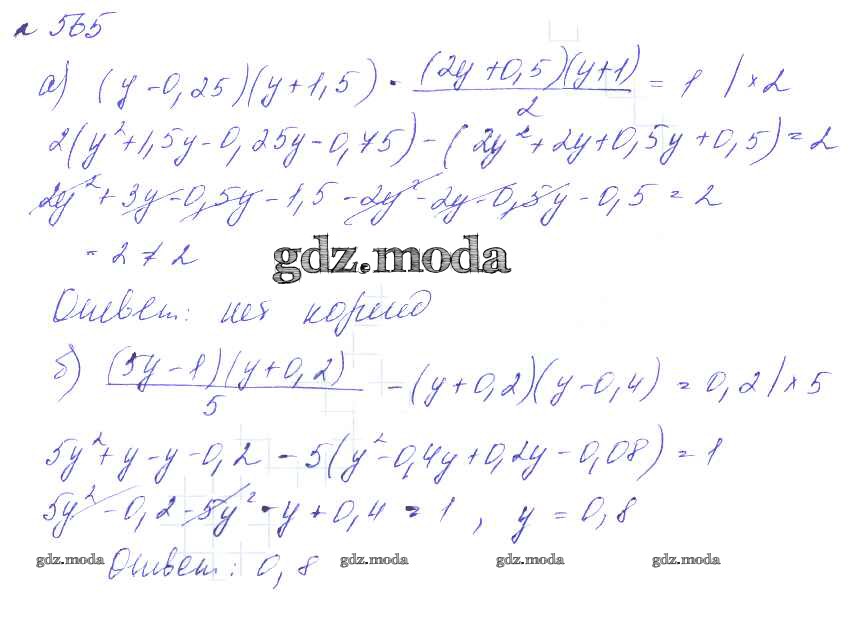 № 565
а) (y-0,25)(y+1,5) - (2y+0,5)(y+1)/2 = 1 | × 2
2(y²+1,5y-0,25y-0,75) - (2y²+2y+0,5y+0,5) = 2
2y²+3y-0,5y-1,5-2y²-2y-0,5y-0,5 = 2
-2 ≠ 2
gdz.moda
Ответ: нет корней
б) (5y-1)(y+0,2)/5 - (y+0,2)(y-0,4) = 0,2 | × 5
5y²+y-y-0,2 - 5(y²-0,4y+0,2y-0,08) = 1
5y²-0,2-5y²-y+0,4 = 1, y = 0,8
gdz.moda gdz.moda gdz.moda gdz.moda
Ответ: 0,8